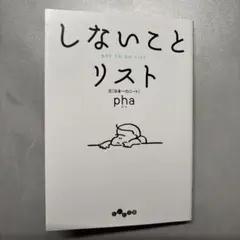 しないこと
リスト
NOT TO DO LIST
元「日本一のニート」
pha
だいわ文庫